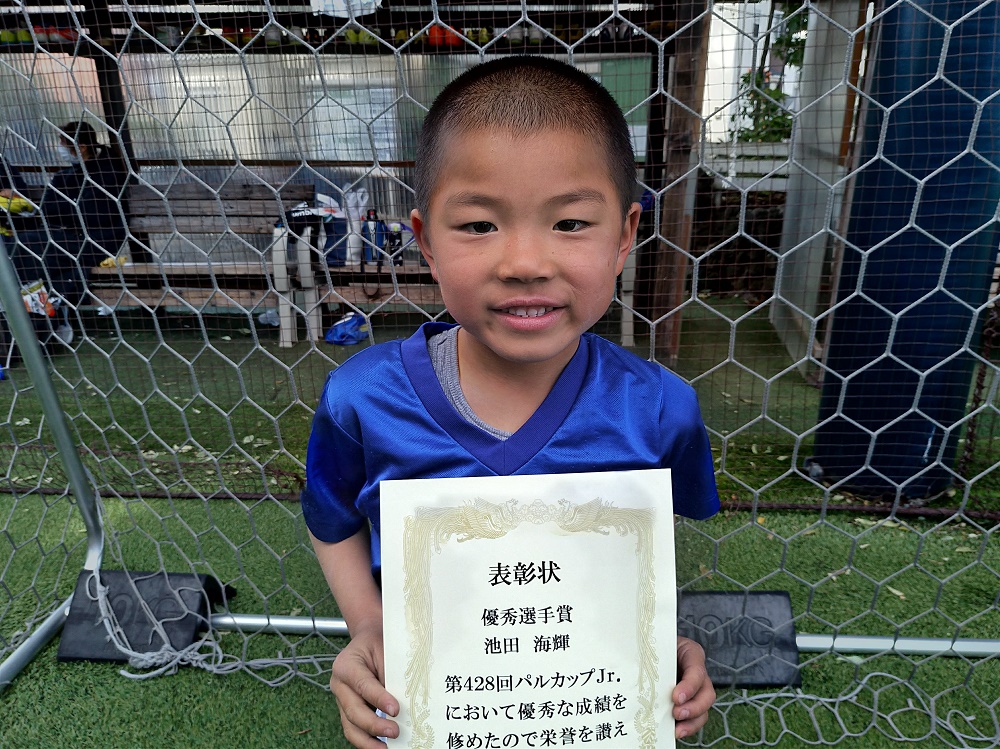 表彰状
優秀選手賞
池田 海輝
第428回パルカップJr.
において優秀な成績を
修めたので栄誉を讃え